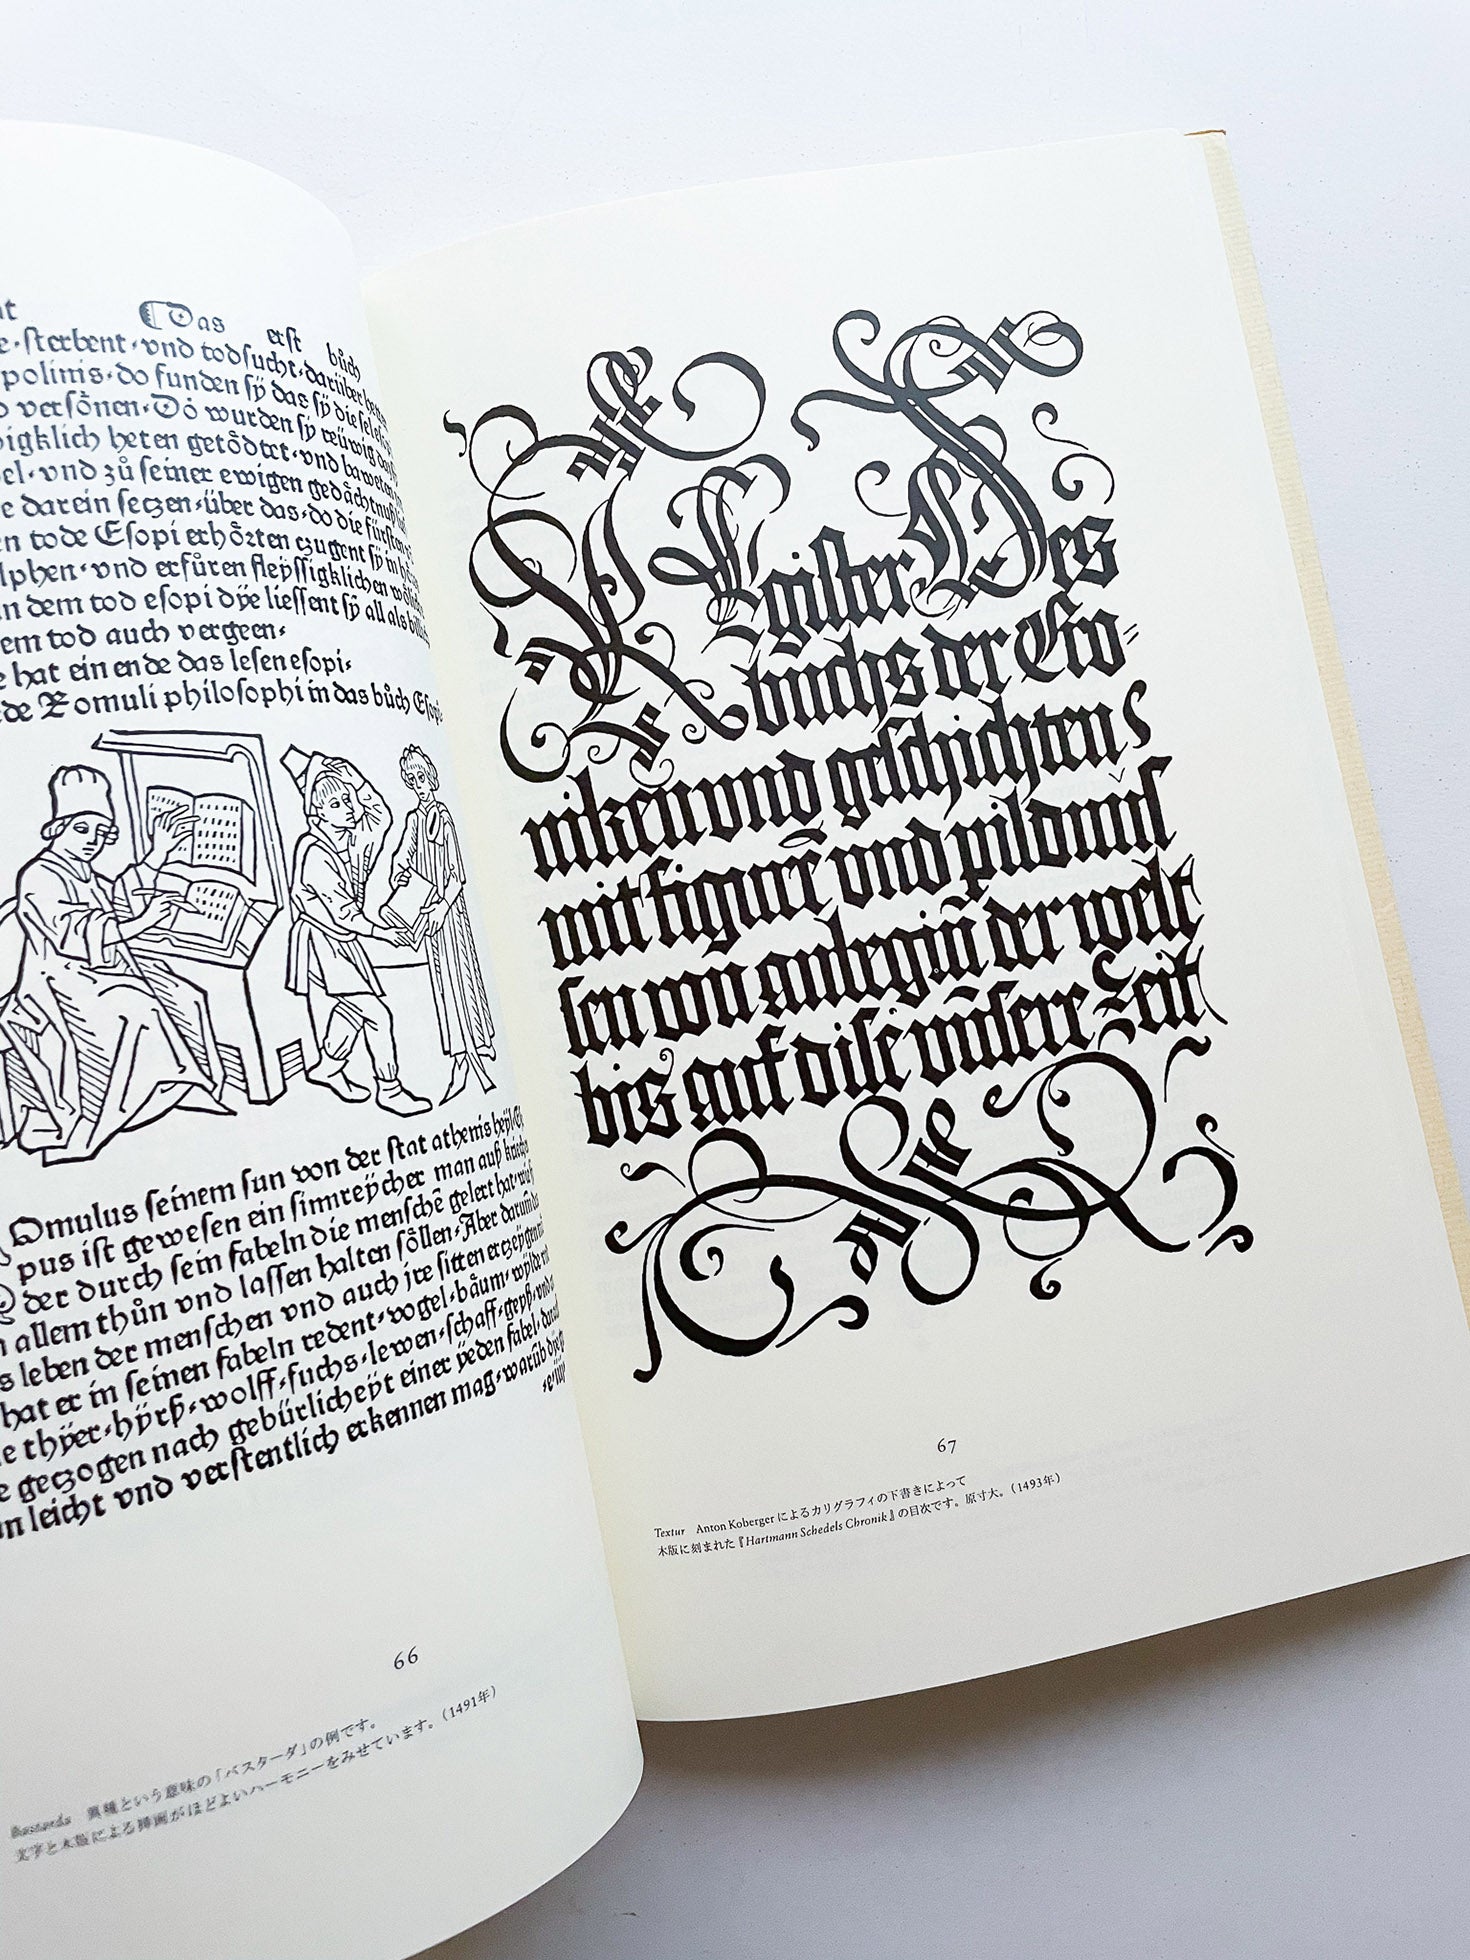 Das erst bůch
sterbent·vnd todsucht·darüber
polinis·do funden sÿ das sÿ die
versönen·Dó wurden sÿ reüwig
igklich heten getödtet·vnd baweten
vnd zů seiner ewigen gedächtnuß
darein seczen·über das·do die fürsten
tode Esopi erhörten czugent sÿ in
lphen·vnd erfůren fleÿssigklichen
dem tod esopi dÿe liessent sÿ all als
em tod auch vergeen·
hat ein ende das lesen esopi·
Romuli philosophi in das bůch Esopi
Omulus seinem sun von der stat athenis heÿl·
pus ist gewesen ein sinnreÿcher man auß
der durch sein fabeln die menschē gelert hat·
allem thůn vnd lassen halten söllen·Aber darumb
leben der menschen vnd auch jre sitten erczeÿgen
hat er in seinen fabeln redent·vogel·bäum·wÿlde
thÿer·hÿrß·wolff·fuchs·lewen·schaff·geÿß·vnd
geczogen nach gebürlicheÿt einer ÿeden fabel·
leicht vnd verstentlich erkennen mag·warūb
66
Bastarda 異種という意味の「バスターダ」の例です。
文字と木版による挿画がほどよいハーモニーをみせています。（1491年）
REgister Des
buchs der Cro-
niken vnd geschichten
mit figurē vnd pildnus
sen von anbegiñ der welt
bis auf dise vnsere Zeit
67
Textur Anton Kobergerによるカリグラフィの下書きによって
木版に刻まれた『Hartmann Schedels Chronik』の目次です。原寸大。（1493年）